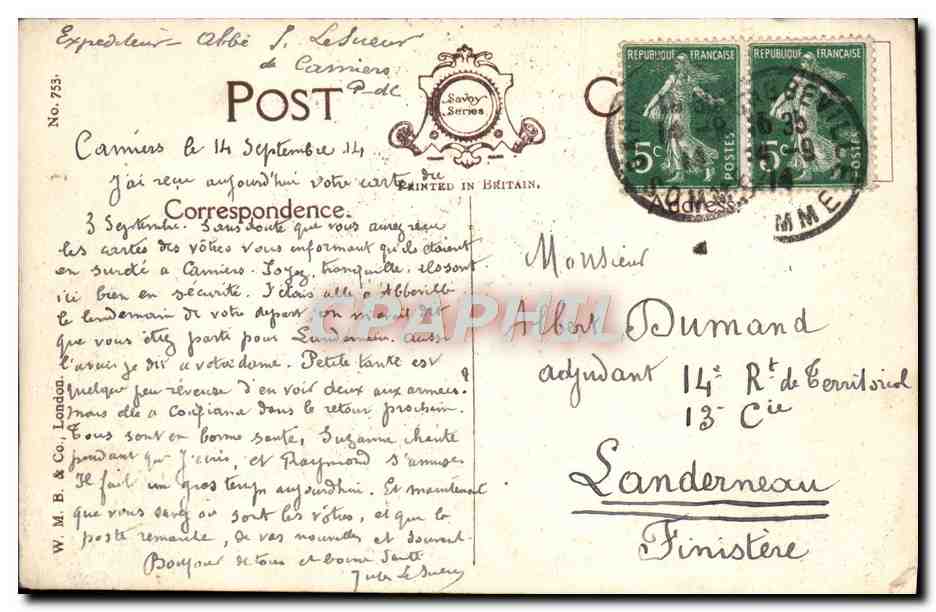 Expediteur - Abbé J. LeSueur
de Camiers
P-de C
No. 753.
POST C
Savoy
Series
REPUBLIQUE FRANÇAISE
5c POSTES
REPUBLIQUE FRANÇAISE
5c POSTES
ABBEVILLE
SOMME
6 35
14-9
14
PRINTED IN BRITAIN.
Correspondence.
Address
Camiers le 14 Septembre 14
J'ai reçu aujourd'hui votre carte du
3 Septembre. Sans doute que vous aurez reçu
les cartes des vôtres vous informant qu'ils étaient
en sureté à Camiers. Soyez tranquille, ils sont
ici bien en sécurité. J'étais allé à Abbeville
le lendemain de votre depart, on m'avait dit
que vous étiez parti pour Landerneau. Aussi
l'avais je dit a votre dame. Petite tante est
quelque peu rêveuse d'en voir deux aux armées.
mais elle a confiance dans le retour prochain.
Tous sont en bonne santé, Suzanne chante
pendant que j'écris, et Raymond s'amuse
Il fait un gros temps aujourdhui. Et maintenant
que vous savez où sont les vôtres, et que la
poste remarche, de vos nouvelles et souvent.
Bonjour de tous et bonne santé
Jules LeSueur
W. M. B. & Co., London.
Monsieur
Albert Dumand
adjudant 14e Rt de Territorial
13 - Cie
Landerneau
Finistère
CPAPHIL